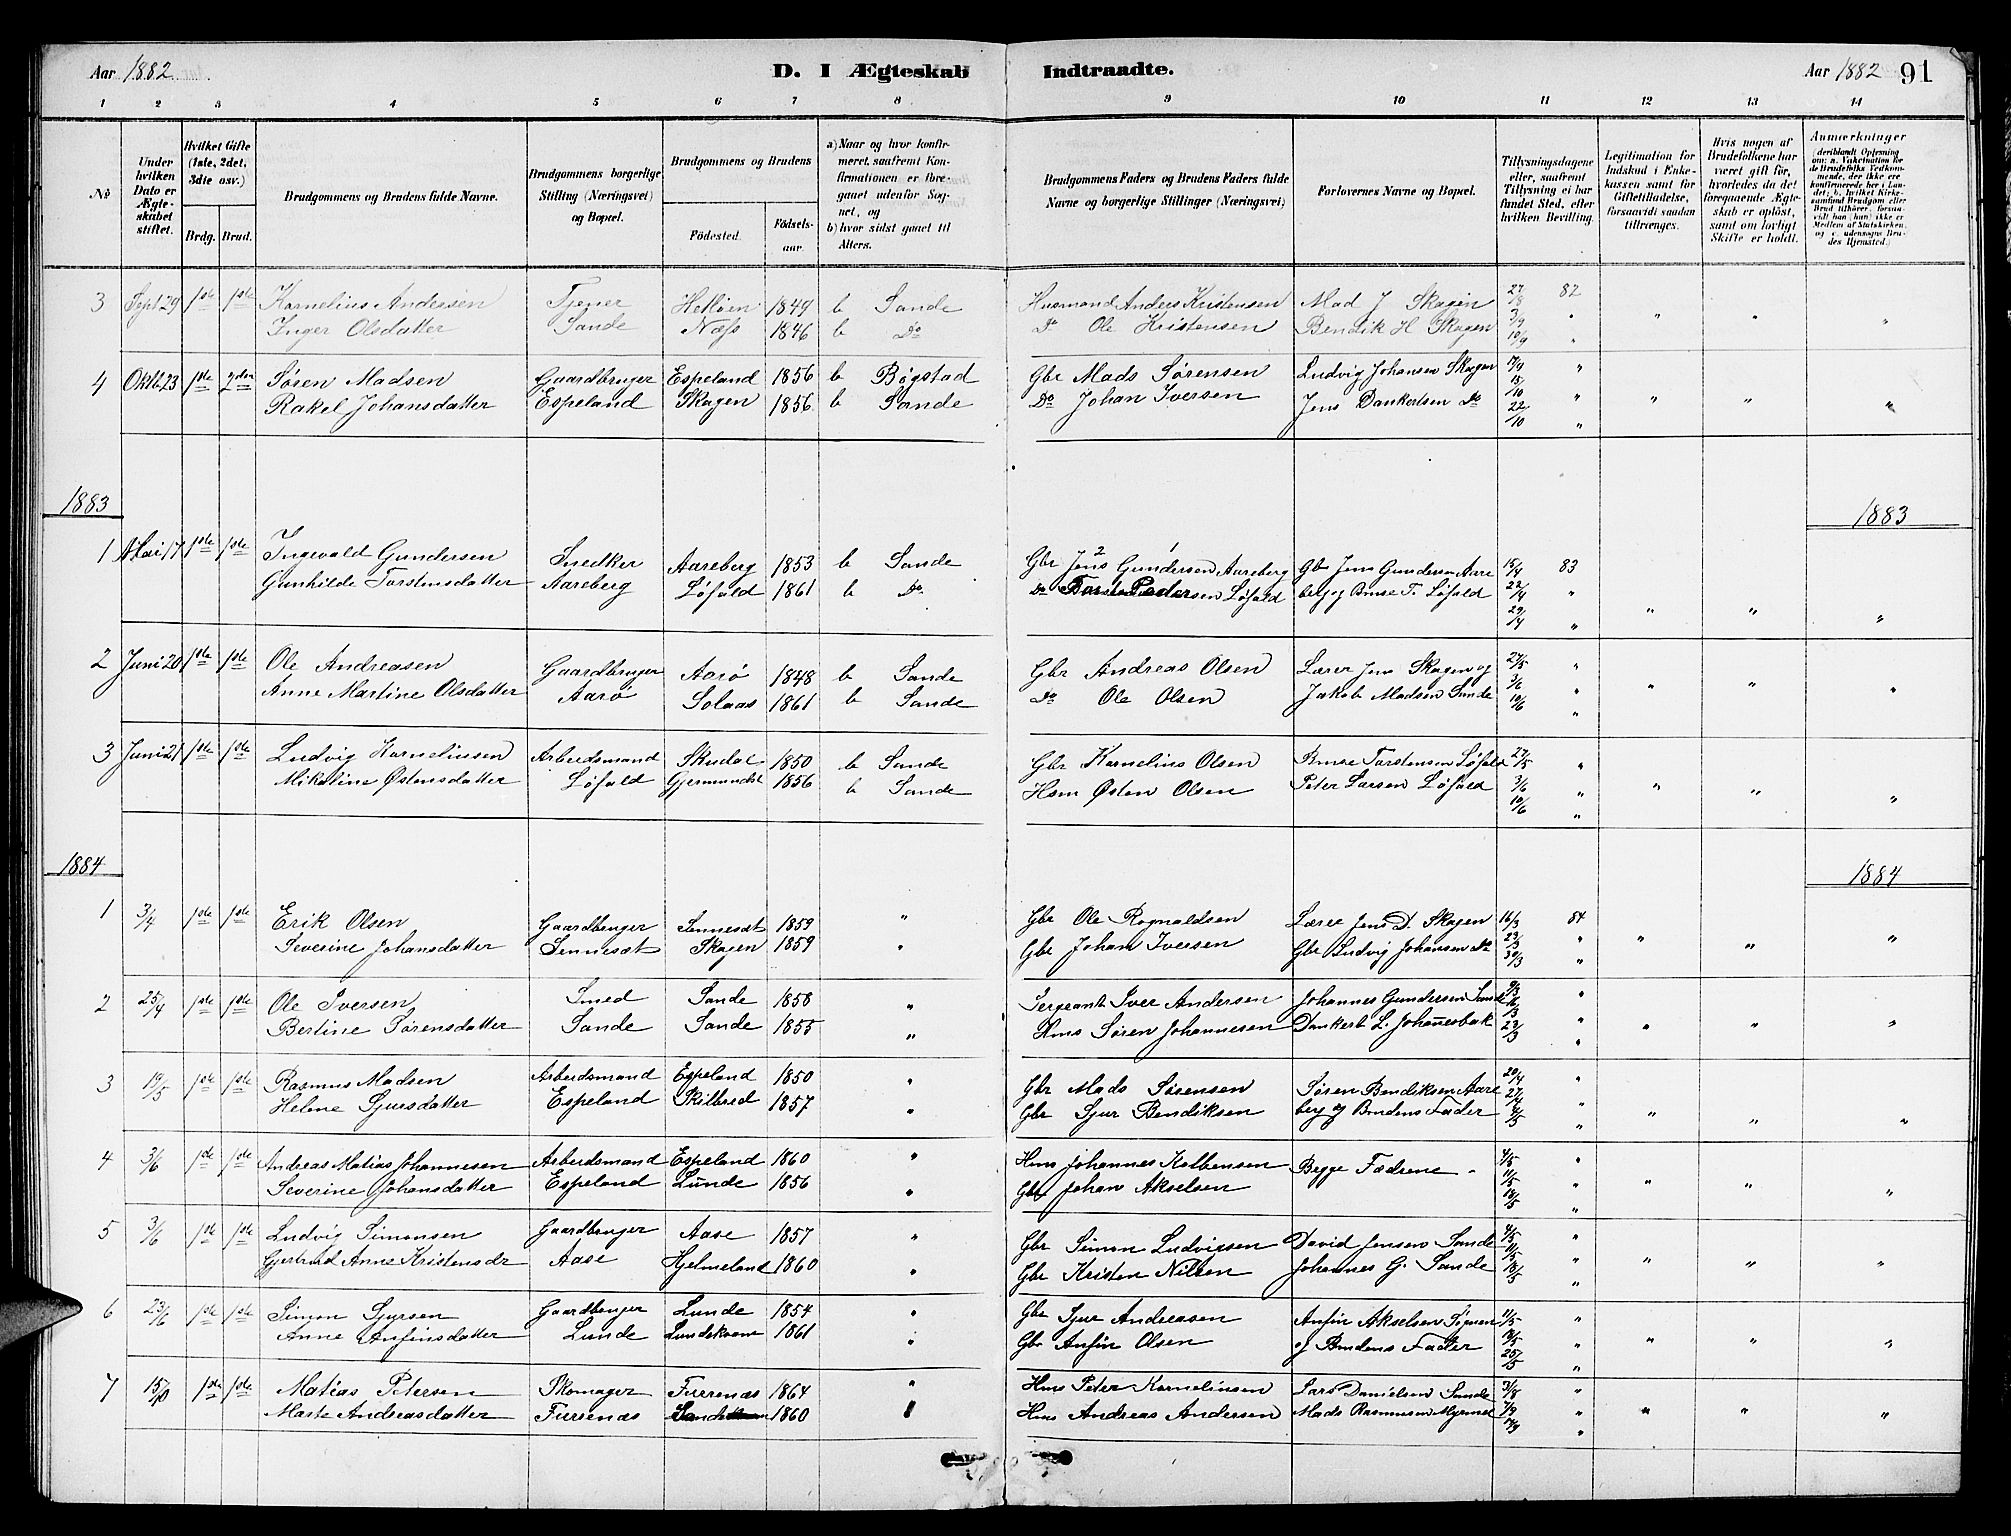 Aar 1882
D. I Ægteskab Indtraadte.
Aar 1882 91
1 2 3 4 5 6 7 8 9 10 11 12 13 14
No
Under hvilken Dato er Ægteskabet stiftet.
Hvilket Gifte (1ste, 2det, 3die osv.)
Brdg. Brud.
Brudgommens og Brudens fulde Navne.
Brudgommens borgerlige Stilling (Næringsvei) og Bopæl.
Brudgommens og Brudens
Fødested. Fødselsaar.
a) Naar og hvor konfirmeret, saafremt Konfirmationen er foregaaet udenfor Sognet, og
b) hvor sidst gaaet til Alters.
Brudgommens Faders og Brudens Faders fulde Navne og borgerlige Stillinger (Næringsvei)
Forlovernes Navne og Bopæl.
Tillysningsdagene eller, saafremt Tillysning ei har fundet Sted, efter hvilken Bevilling.
Legitimation for Indskud i Enkekassen samt for Giftetilladelse, forsaavidt saadan tiltrænges.
Hvis nogen af Brudefolkene har været gift før, hvorledes da det foregaaende Ægteskab er opløst, samt om lovligt Skifte er holdt.
Anmærkninger
3 Sept 29 1ste 1ste Kornelius Andersen Tjener Hekøen 1849 b Sande Husmand Anders Kristensen Mad J Skagen 27/8 82
Inger Olsdatter Sande Næss 1846 b Do Do Ole Kristensen Bendik H Skagen 3/9 "
10/9 "
4 Oktb 23 1ste 2den Søren Madsen Gaardbruger Espeland 1856 b Bøgstad Gbr Mads Sørensen Ludvig Johansen Skagen 17/9 "
Rakel Johansdatter Espeland Skagen 1856 b Sande Do Johan Iversen Jens Dankertsen Do 15/10 "
22/10 "
1883 1883
1 Mai 17 1ste 1ste Ingevald Gundersen Snedker Aareberg 1853 b Sande Gbr Jens Gundersen Aareberg Gbr Jens Gundersen Aare 15/4 83
Gunhilde Torstensdatter Aareberg Løfald 1861 b Do. Do Torsten Pedersen Løfald berg og Bmse T. Løfald 22/4 "
29/4 "
2 Juni 20 1ste 1ste Ole Andreasen Gaardbruger Aarø 1848 b Sande Gbr Andreas Olsen Lærer Jens Skagen og 27/5 "
Anne Martine Olsdatter Aarø Solaas 1861 b Sande Do Ole Olsen Jakob Madsen Sande 3/6 "
10/6 "
3 Juni 21 1ste 1ste Ludvig Kornelinsen Arbeidsmand Skudal 1850 b Sande Gbr Kornelius Olsen Torstensen Løfald 27/5 "
Mikaline Østensdatter Løfald 1856 b Sande Hsm Østen Olsen Peter Larsen Løfald 3/6 "
10/6 "
1884 1884
1 3/4 1ste 1ste Erik Olsen Gaardbruger Sennesæt 1859 " Gbr Ole Rognaldsen Lærer Jens D. Skagen 16/3 84
Severine Johansdatter Sennesæt Skagen 1859 " Gbr Johan Iversen Gbr Ludvig Johansen Do 23/3 "
30/3 "
2 25/4 1ste 1ste Ole Iversen Smed Sande 1858 " Sergeant Iver Andersen Johannes Gundersen Sande 9/3 "
Bertine Sørensdatter Sande Sande 1855 " Hms Søren Johannesen Dankert L. Johannesbak 16/3 "
23/3 "
3 19/5 1ste 1ste Rasmus Madsen Arbeidsmand Espeland 1850 " Gbr Mads Sørensen Søren Bendiksen Aare 20/4 "
Helene Sjursdatter Espeland Skilbred 1857 " Gbr Sjur Bendiksen berg og Brudens Fader 27/4 "
4/5 "
4 3/6 1ste 1ste Andreas Matias Johannesen Arbeidsmand Espeland 1860 " Hms Johannes Kolbensen Begge Fædrene 4/5 "
Severine Johansdatter Espeland Lunde 1856 " Gbr Johan Akselsen 11/5 "
18/5 "
5 3/6 1ste 1ste Ludvig Simonsen Gaardbruger Aase 1857 " Gbr Simon Ludvigsen David Jensen Sande 4/5 "
Gjertrud Anne Kristensdr Aase Hjelmeland 1860 " Gbr Kristen Nilsen Johannes G. Sande 11/5 "
18/5 "
6 23/6 1ste 1ste Simon Sjursen Gaardbruger Lunde 1854 " Gbr Sjur Andreasen Anfin Akselsen 11/5 "
Anne Anfinsdatter Lunde 1861 " Gbr Anfin Olsen og Brudens Fader 18/5 "
25/5 "
7 1ste 1ste Matias Petersen Skomager Furenæs 1864 " Hms Peter Kornelinsen Lars Danielsen Sande 31/8 "
Marte Andreasdatter Furenæs 1860 Hms Andreas Andersen Mads Rasmusen 7/9 "
14/9 "